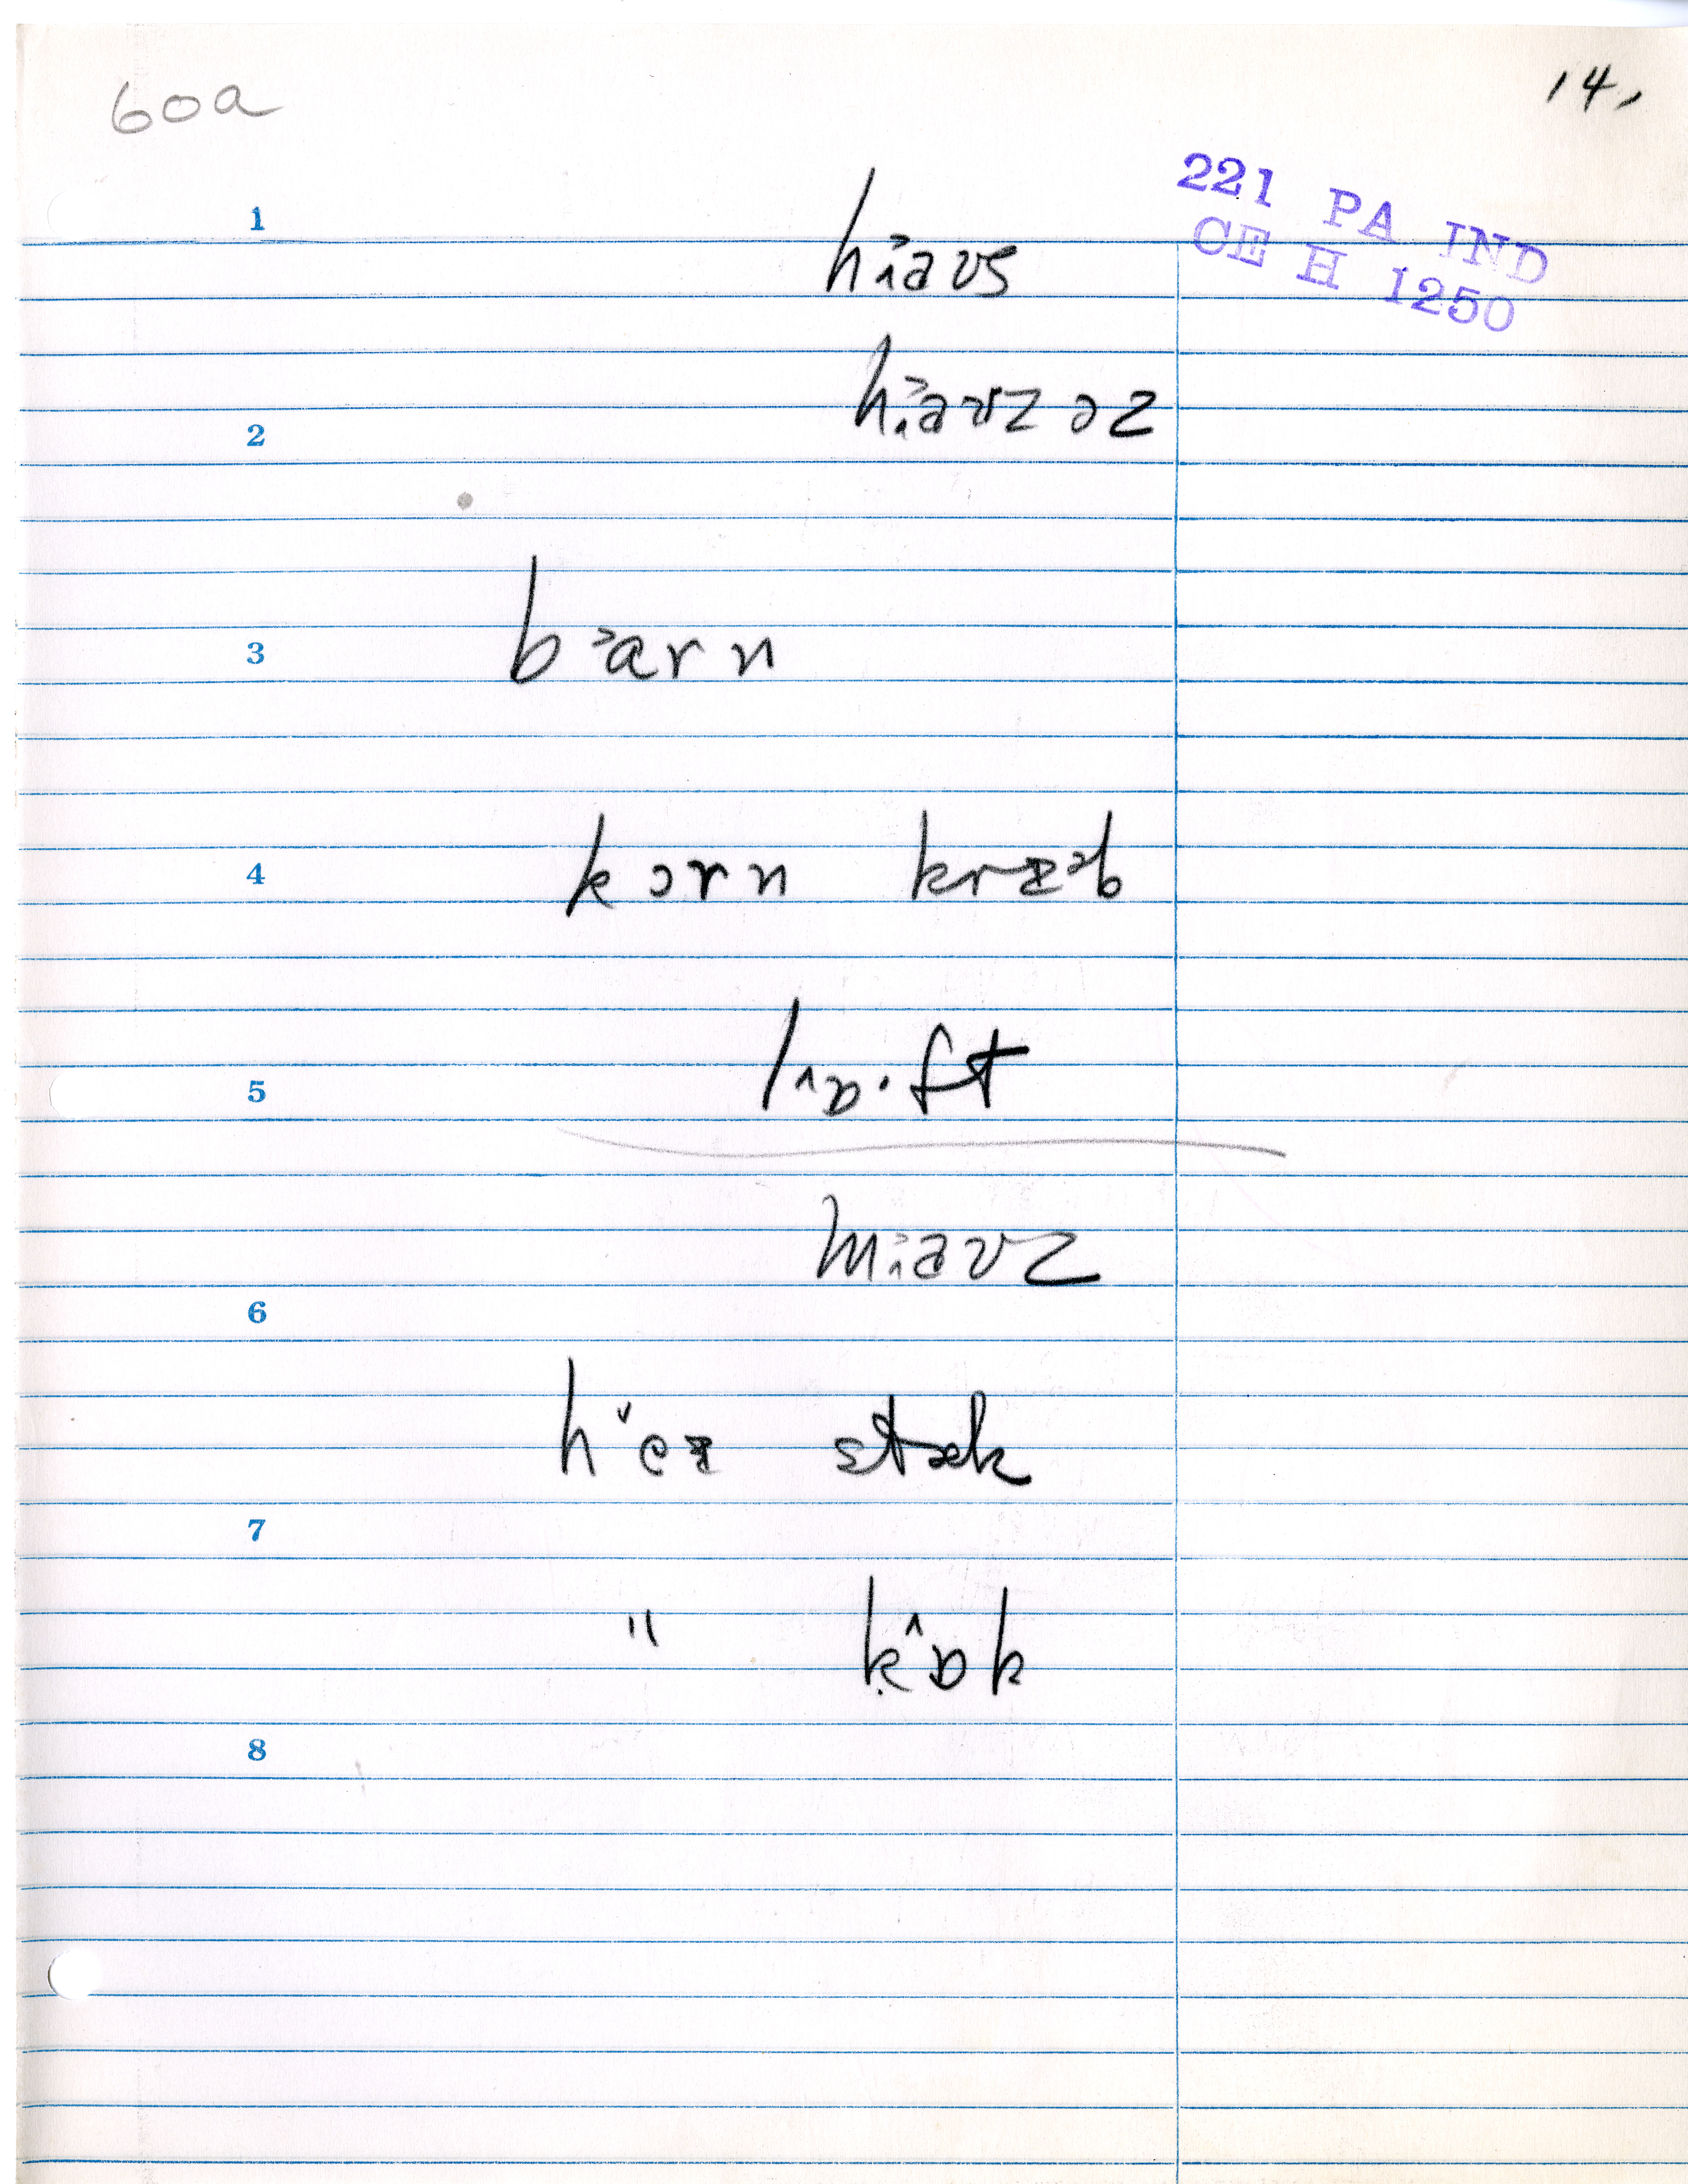 60a
14,
221 PA IND
CE H 1250
1
ha̟˃ʊs
2
ha̟˃ʊzəz
3
bɑ˃rn
4
kɔrn krɪ˃b
5
lɒ^·ft
ma̟˃ʊz
6
he˅ɪ stæk
7
" kɒ^k
8